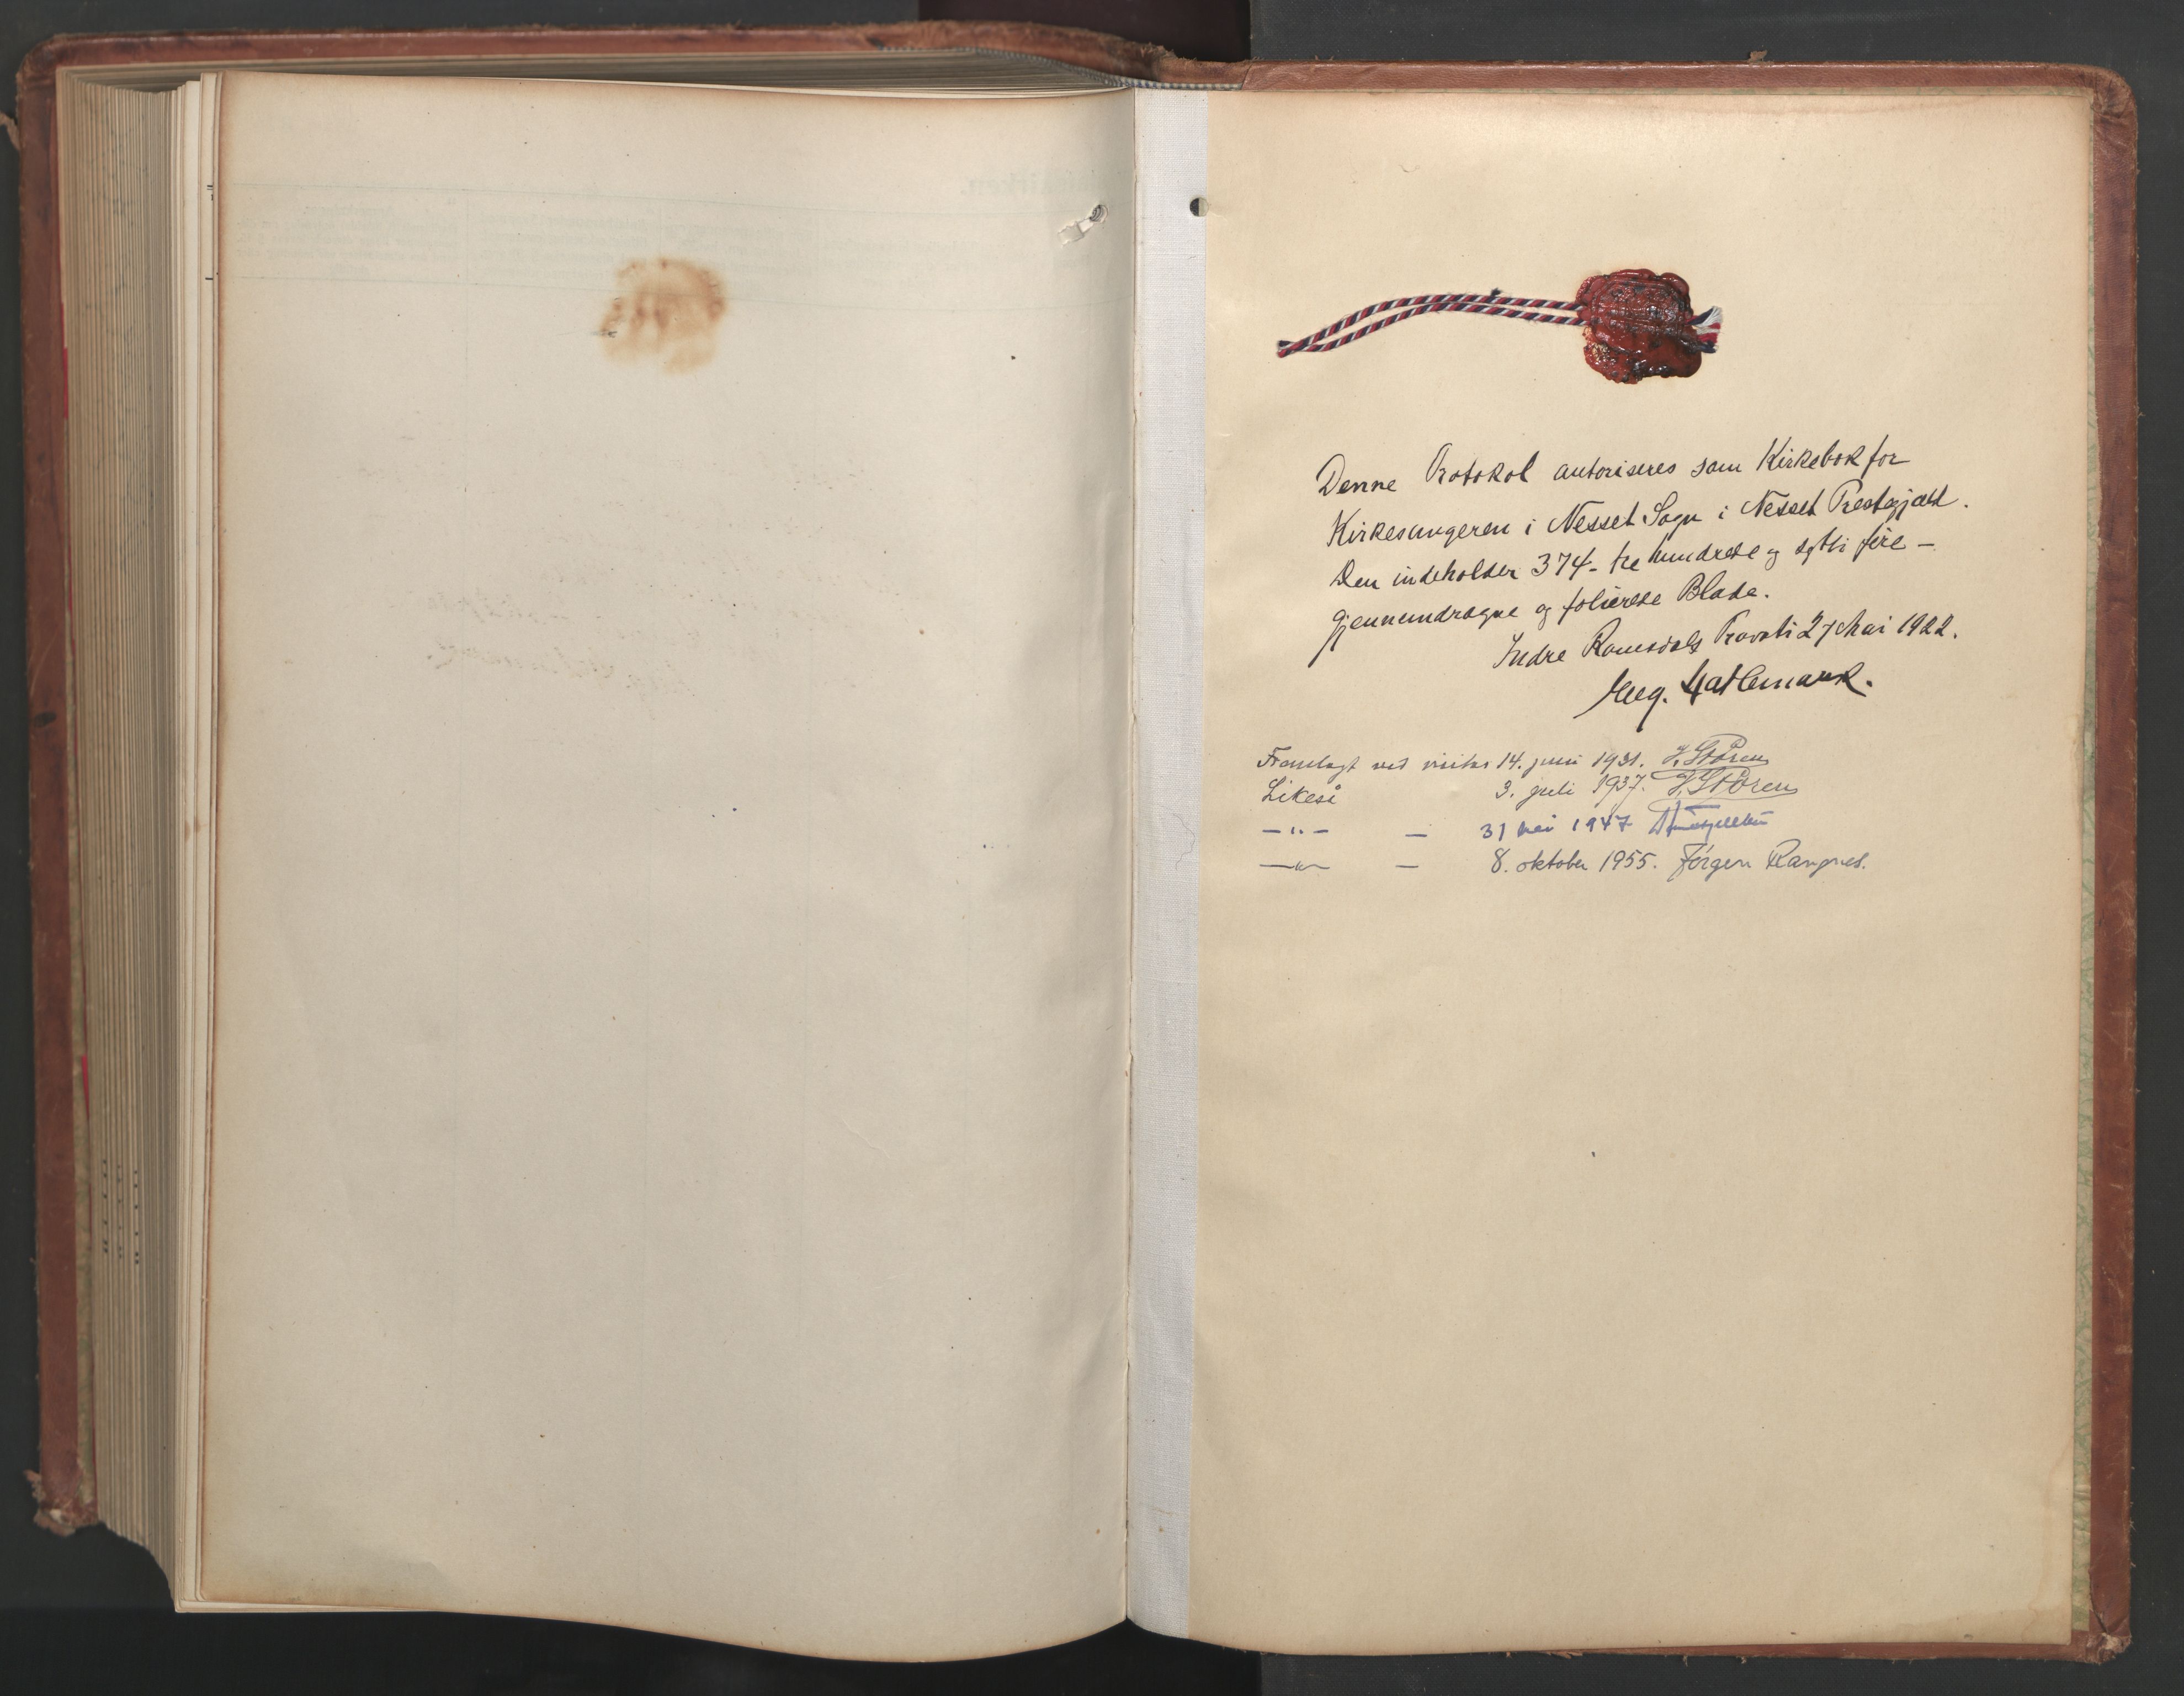 Denne Protokol autoriseres som Kirkebok for
Kirkesangeren i Nesset Sogn i Nesset Prestegjæld.
Den indeholder 374 - tre hundrede og sytti fire -
gjennemdragne og folierede Blade.
Indre Romsdals Provsti 27 Mai 1922.
Aug. Hatlemark.
Framlagt ved visitas 14. juni 1931. H. Støren
Likeså 3. juli 1937. H. Støren
- " - - 31 mai 1947
- " - - 8. oktober 1955. Jørgen Rangnes.